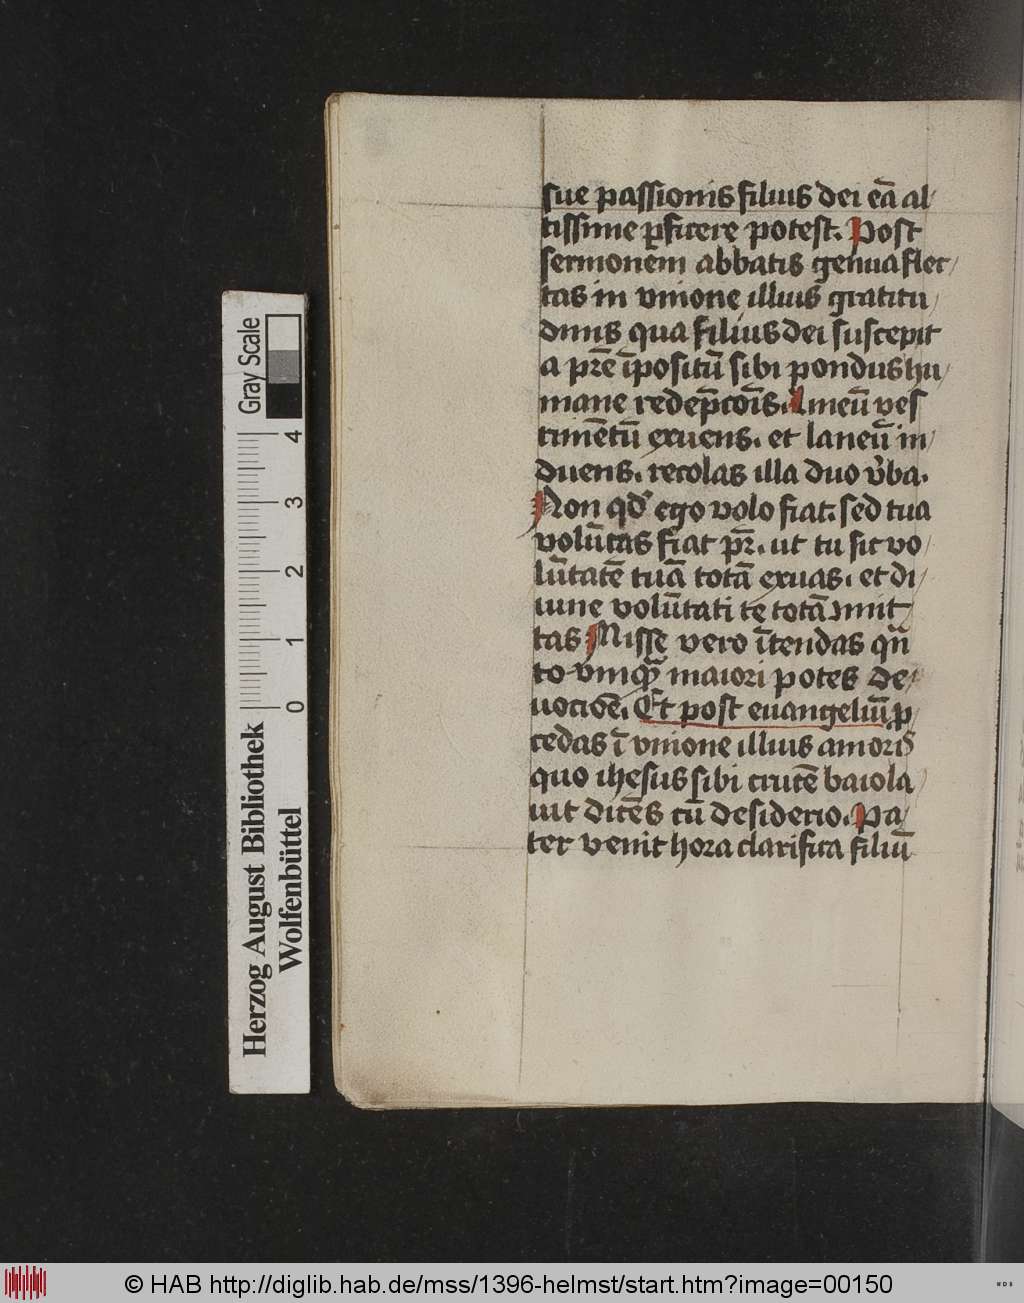 sue passionis filius dei eā al/
tissime ꝑficere potest. Post
sermonem abbatis genua flec/
tas in vnione illius gratitu/
dinis qua filius dei suscepit
a pr̄e īpositū sibi pondus hu/
mane redēpcōis. Lineū ves
timētū exuens. et laneū in/
duens. recolas illa duo v̄ba.
Non qd̓ ego volo fiat. sed tua
volūtas fiat pr̄. ut tu sic vo/
lūtatē tuā totā exuas. et di/
uine volūtati te totā imit
tas Misse vero ītendas qn̄
to vniqꝫ maiori potes de/
uocōe. Et post euangeliū ꝓ
cedas ī vnione illius amoris
quo ihesus sibi crucē baiola/
uit dicēs cū desiderio. Pa/
ter venit hora clarifica filiū
Gray Scale
0 1 2 3 4
Herzog August Bibliothek
Wolfenbüttel
© HAB http://diglib.hab.de/mss/1396-helmst/start.htm?image=00150
WDB